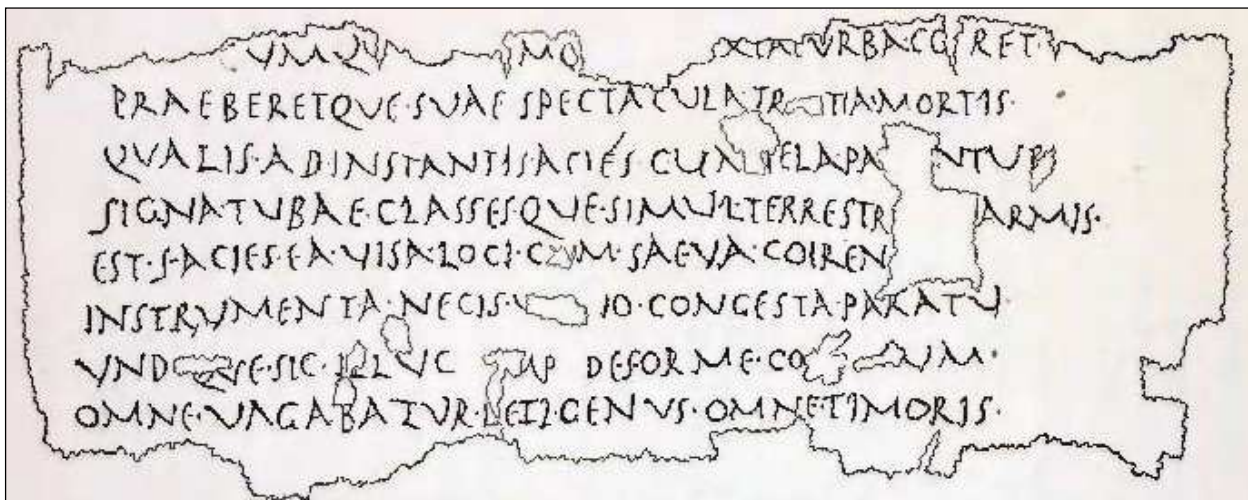 VMQV MQ XIATVRBACO RET·
PRAEBERETQVE·SVAE SPECTACVLA·TR TIA·MORTIS·
QVALIS·AD INSTANTIS·ACIES·CVM TELA PA NTVR
SIGNA·TVBAE·CLASSESQVE·SIMVL·TERRESTR ARMIS·
EST·FACIES·EA·VISA·LOCI·CVM·SAEVA·COIREN
INSTRVMENTA·NECIS·V IO·CONGESTA·PARATV
VND QVE·SIC·ILLVC MP DEFORME·CO VM·
OMNE·VAGABATVR·LETI·GENVS·OMNE·TIMORIS·